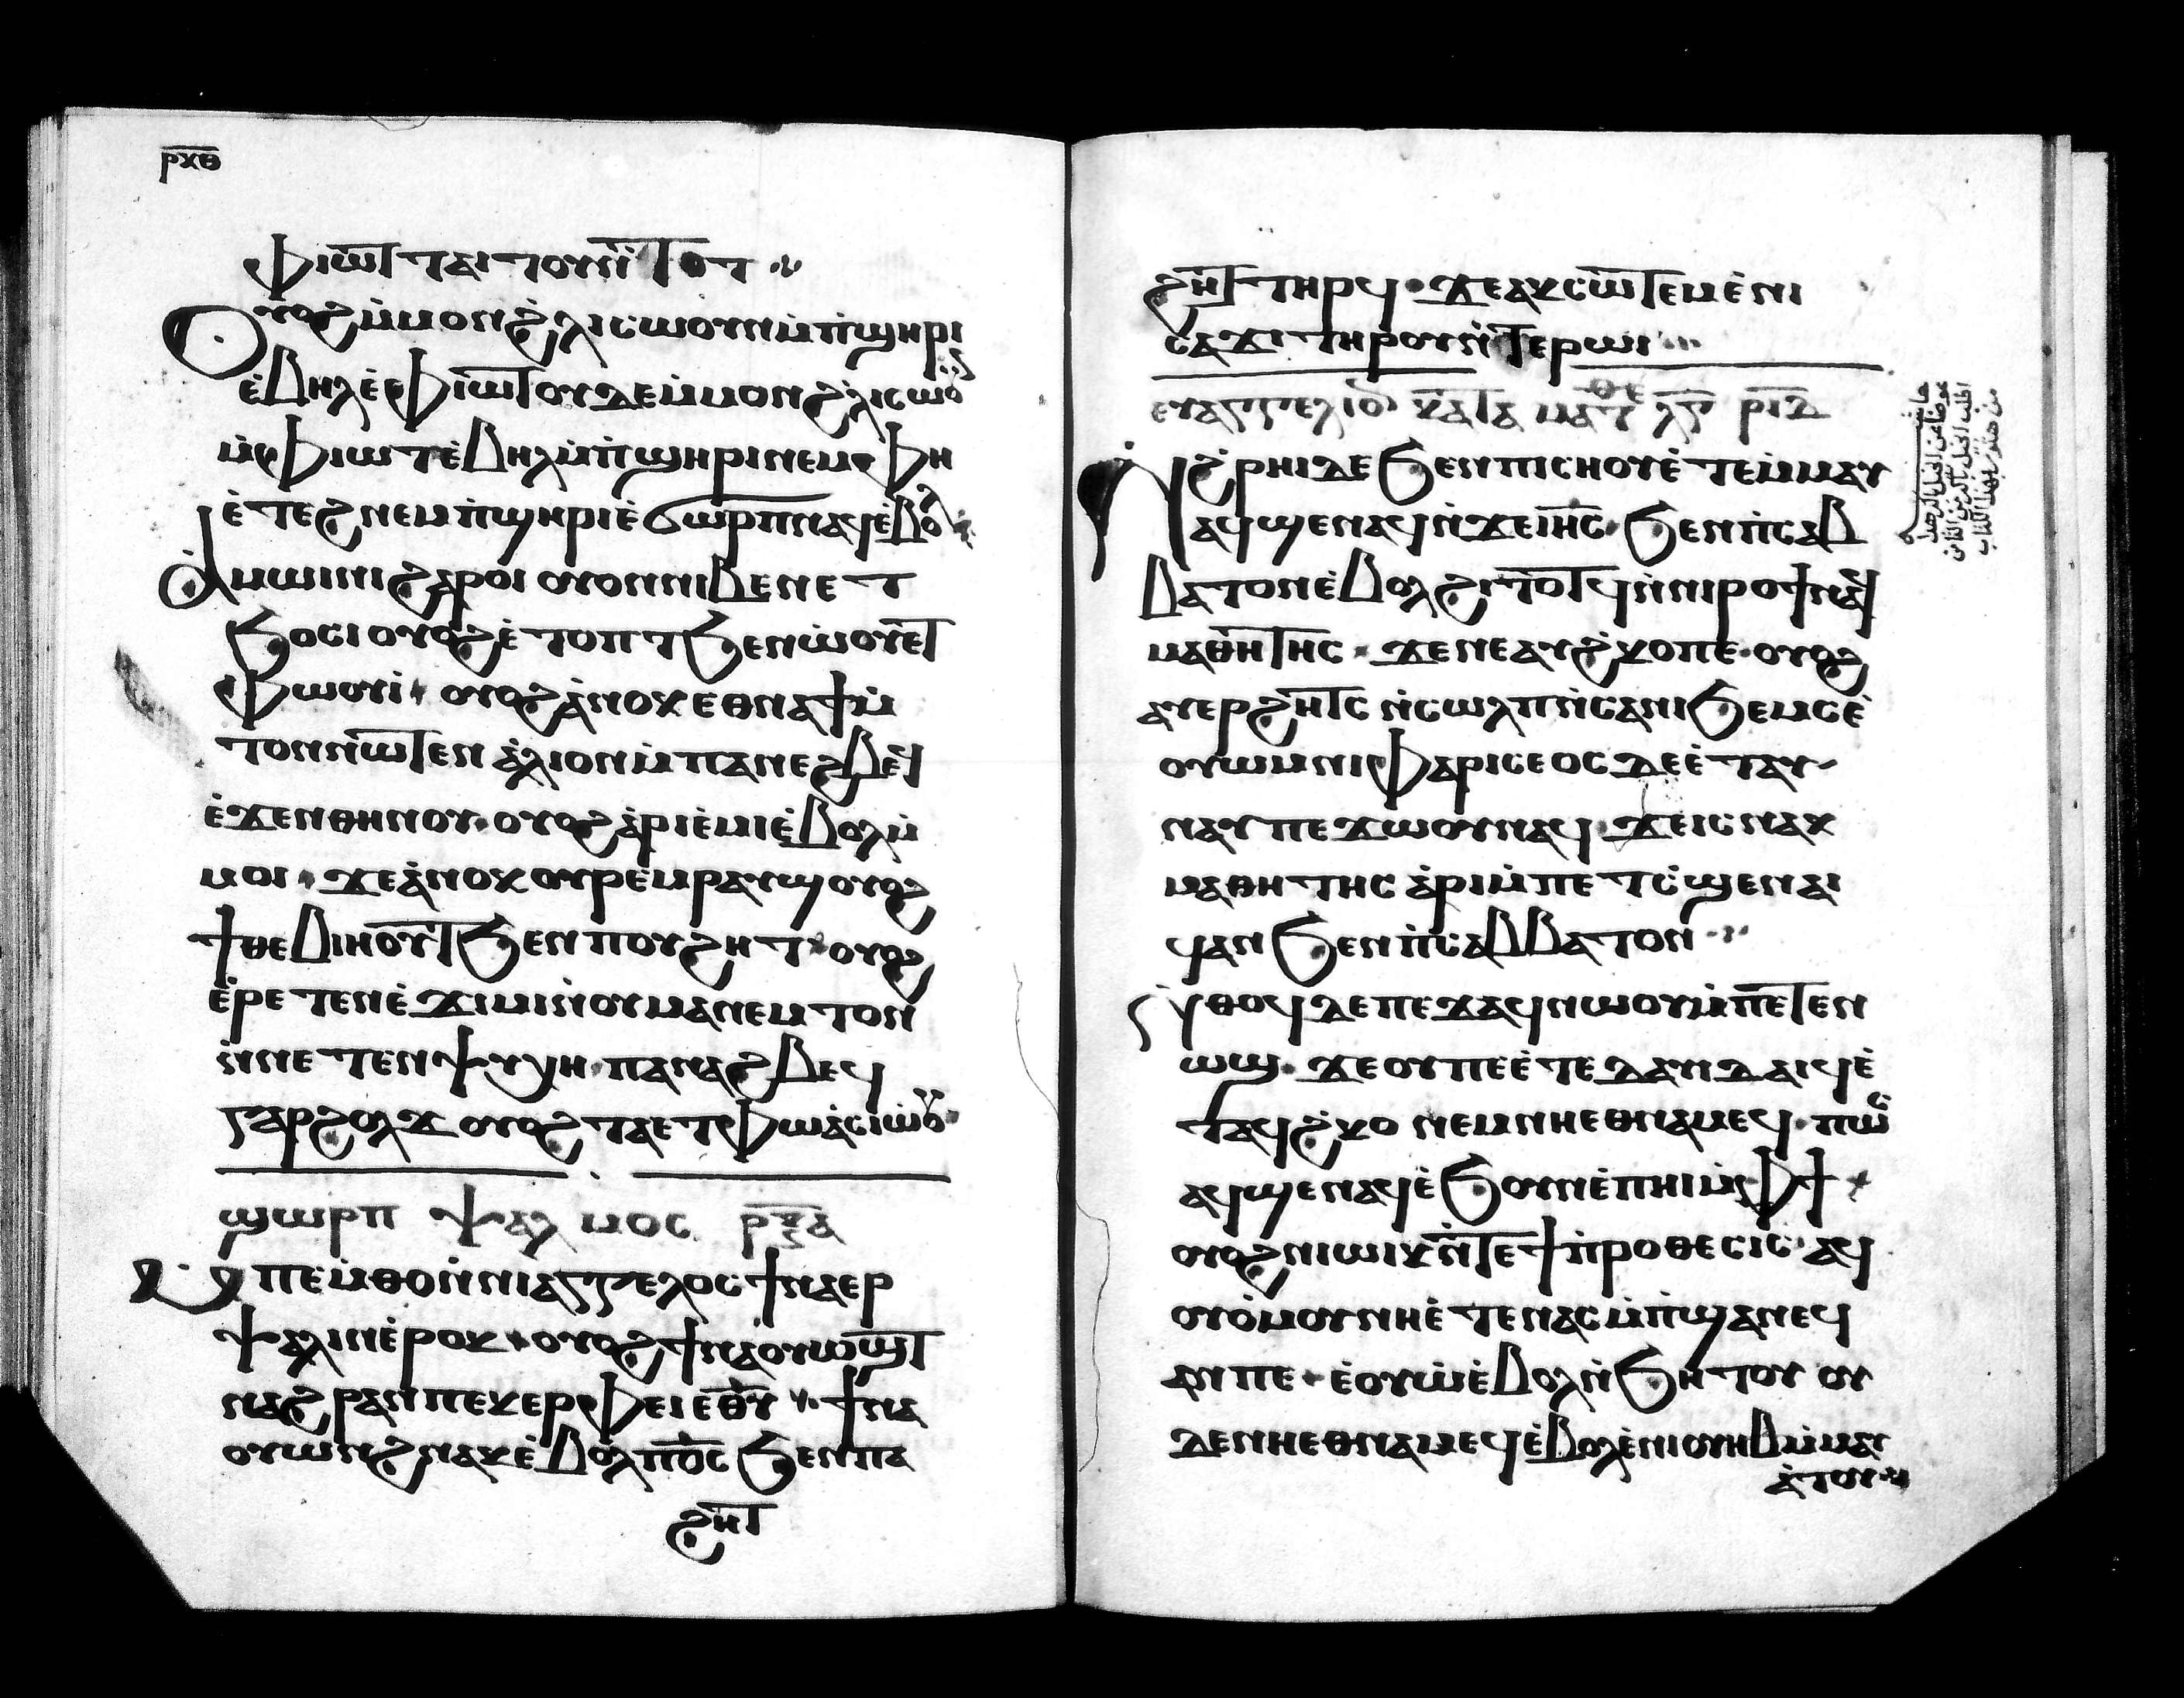 ⲣⲕⲑ
ⲫⲓⲱⲧ ⲧⲁⲓⲧⲟⲩ ⲛ̀ⲧⲟⲧ
ⲟⲩⲟϩ ⲙ̀ⲙⲟⲛ ϩ̀ⲗⲓ ⲥⲱⲟⲩⲛ ⲙ̀ⲡ̀ϣⲏⲣⲓ
ⲉ̀ⲃⲏⲗ ⲉ̀ⲫⲓⲱⲧ ⲟⲩⲇⲉ ⲙ̀ⲙⲟⲛ ϩ̀ⲗⲓ ⲥⲱⲟⲩⲛ
ⲙ̀ⲫⲓⲱⲧ ⲉ̀ⲃⲏⲗ ⲙ̀ⲡ̀ϣⲏⲣⲓ ⲛⲉⲙ ⲫⲏ
ⲉ̀ⲧⲉϩⲛⲉ ⲙ̀ⲡ̀ϣⲏⲣⲓ ⲉ̀ϭⲱⲣⲡ ⲛⲁϥ ⲉ̀ⲃⲟⲗ
ⲁ̀ⲙⲱⲓⲛⲓ ϩⲁⲣⲟⲓ ⲟⲩⲟⲛ ⲛⲓⲃⲉⲛ ⲉⲧ
ϧⲟⲥⲓ ⲟⲩⲟϩ ⲉ̀ⲧⲟⲡⲧ ϧⲉⲛ ⲛⲟⲩⲉⲧ
ⲫⲱⲟⲩⲓ ⲟⲩⲟϩ ⲁ̀ⲛⲟⲕ ⲉⲑⲛⲁϯ ⲙ̀
ⲧⲟⲛ ⲛⲱⲧⲉⲛ ⲁ̀ⲗⲓⲟⲩⲓ ⲙ̀ⲡⲁⲛⲁϩⲃⲉϥ
ⲉ̀ϫⲉⲛ ⲑⲏⲛⲟⲩ ⲟⲩⲟϩ ⲁ̀ⲣⲓⲉ̀ⲙⲓ ⲉ̀ⲃⲟⲗ ⲙ̀
ⲙⲟⲓ ϫⲉ ⲁ̀ⲛⲟⲕ ⲟⲩⲣⲉⲙⲣⲁⲩϣ ⲟⲩⲟϩ
ϯⲑⲉⲃⲓⲏⲟⲩⲧ ϧⲉⲛ ⲡⲟⲩϩⲏⲧ ⲟⲩⲟϩ
ⲉ̀ⲣⲉⲧⲉⲛⲉ̀ϫⲓⲙⲓ ⲛ̀ⲟⲩⲙⲁⲛⲉⲙⲧⲟⲛ
ⲛ̀ⲛⲉⲧⲉⲛⲯⲩⲭⲏ ⲡⲁⲛⲁϩⲃⲉϥ
ⲅⲁⲣ ϩⲟⲗϫ ⲟⲩⲟϩ ⲧⲁⲉⲧⲫⲱ ⲁ̀ⲥⲓⲱⲟⲩ
ϣⲱⲣⲡ ⲯⲁⲗⲙⲟⲥ ⲣⲗⲍ ⲁ
ⲙ̀ⲡⲉⲙ̀ⲑⲟ ⲛ̀ⲛⲓⲁⲅⲅⲉⲗⲟⲥ ϯⲛⲁⲉⲣ
ⲯⲁⲗⲓⲛ ⲉ̀ⲣⲟⲕ ⲟⲩⲟϩ ϯⲛⲁⲟⲩⲱϣⲧ
ⲛⲁϩⲣⲁⲛ ⲡⲉⲕⲉⲣⲫⲉⲓ ⲉⲑⲩ ϯⲛⲁ
ⲟⲩⲱⲛϩ ⲛⲁⲕ ⲉ̀ⲃⲟⲗ ⲡⲟⲥ ϧⲉⲛ ⲡⲁ
ϩⲏⲧ
ϩⲏⲧ ⲧⲏⲣϥ ϫⲉ ⲁⲕⲥⲱⲧⲉⲙ ⲉ̀ⲛⲓ
ⲥⲁϫⲓ ⲧⲏⲣⲟⲩ ⲛ̀ⲧⲉ ⲣⲱⲓ
ⲉⲩⲁⲅⲅⲉⲗⲓⲟⲛ ⲕⲁⲧⲁ ⲙⲁⲧⲑⲉ ⲗⲅ ⲣⲓⲇ
ⲛ̀ϩ̀ⲣⲏⲓ ⲇⲉ ϧⲉⲛ ⲡⲓⲥⲏⲟⲩ ⲉ̀ⲧⲉⲙ̀ⲙⲁⲩ
ⲁϥϣⲉⲛⲁϥ ⲛ̀ϫⲉ ⲓⲏⲥ ϧⲉⲛ ⲡ̀ⲥⲁⲃ
ⲃⲁⲧⲟⲛ ⲉ̀ⲃⲟⲗ ϩⲓⲧⲟⲧϥ ⲛ̀ⲛⲓⲣⲟϯ ⲛⲉϥ
ⲙⲁⲑⲏⲧⲏⲥ ϫⲉ ⲛⲉⲁⲩϩ̀ⲕⲟ ⲡⲉ ⲟⲩⲟϩ
ⲁⲩⲉⲣϩⲏⲧⲥ ⲛ̀ⲥⲱⲗⲡ ⲛ̀ϩⲁⲛϧⲉⲙⲥ ⲉ̀
ⲟⲩⲱⲙ ⲛⲓⲫⲁⲣⲓⲥⲉⲟⲥ ⲇⲉ ⲉ̀ⲧⲁⲩ
ⲛⲁⲩ ⲡⲉϫⲱⲟⲩ ⲛⲁϥ ϫⲉ ⲓⲥ ⲛⲉⲕ
ⲙⲁⲑⲏⲧⲏⲥ ⲁ̀ⲣⲓ ⲙ̀ⲡⲉⲧⲥ̀ϣⲉ ⲛⲁⲓ
ϥ ⲁⲛ ϧⲉⲛ ⲡ̀ⲥⲁⲃⲃⲁⲧⲟⲛ
ⲛ̀ⲑⲟϥ ⲇⲉ ⲡⲉϫⲁϥ ⲛⲱⲟⲩ ⲙ̀ⲡⲉⲧⲉⲛ
ⲱϣ ϫⲉ ⲟⲩ ⲡⲉ ⲉ̀ⲧⲉ ⲇⲁⲩⲓⲇ ⲁⲓϥ ⲉ̀
ⲧⲁϥϩ̀ⲕⲟ ⲛⲉⲙ ⲛⲏ ⲉⲑⲛⲁⲙⲉϥ ⲡⲱⲥ
ⲁϥϣⲉⲛⲁϥ ⲉ̀ϧⲟⲩⲛ ⲉ̀ⲡⲏⲓ ⲙ̀ⲫϯ
ⲟⲩⲟϩ ⲛⲓⲱⲓⲕ ⲛ̀ⲧⲉ ϯⲡ̀ⲣⲟⲑⲉⲥⲓⲥ ⲁϥ
ⲟⲩⲟ̀ⲙⲟⲩ ⲛⲏ ⲉ̀ⲧⲉ ⲛⲁⲥⲙ̀ⲡ̀ϣⲁ ⲛⲉϥ
ⲁⲛ ⲡⲉ ⲉ̀ⲟⲩⲱⲙ ⲉ̀ⲃⲟⲗ ⲛ̀ϧⲏⲧⲟⲩ ⲟⲩ
ⲇⲉ ⲛⲏ ⲉⲑⲛⲁⲙⲉϥ ⲉ̀ⲃⲟⲗ ⲉ̀ⲛⲓⲟⲩⲏⲃ ⲙ̀ⲙⲁⲩ
ⲁ̀ⲧⲟⲩ